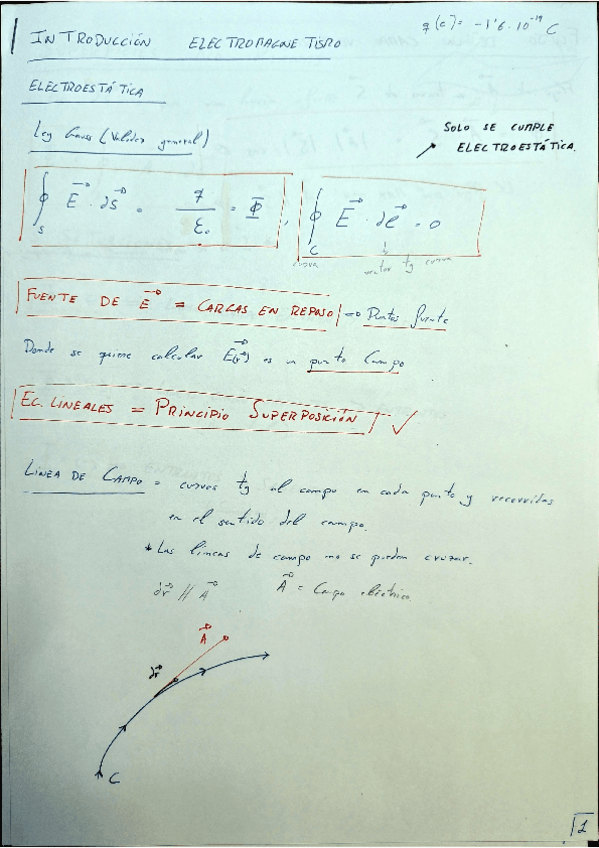 q(e) = -1'6·10⁻¹⁹ C
INTRODUCCIÓN ELECTROMAGNETISMO
ELECTROESTÁTICA
SOLO SE CUMPLE
ELECTROESTÁTICA.
Ley Gauss (Validez general)
∮_S E⃗·ds⃗ = q/ε₀ = Φ, ∮_C E⃗·dl⃗ = 0
curva vector tg curva
FUENTE DE E⃗ = CARGAS EN REPOSO → Puntos fuente
Donde se quiere calcular E⃗(r⃗) es un punto Campo
EC. LINEALES = PRINCIPIO SUPERPOSICIÓN ✓
LINEA DE CAMPO = curvas tg al campo en cada punto y recorridas
en el sentido del campo.
* Las lineas de campo no se pueden cruzar.
dr⃗ // A⃗ A⃗ = Campo eléctrico.
A⃗
dr⃗
C
1